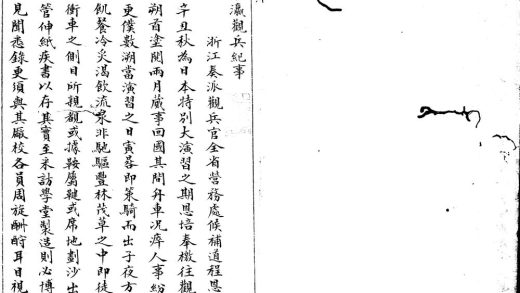 瀛觀兵紀事
浙江奏派觀兵官全省營務處候補道程恩
辛丑秋為日本特別大演習之期恩培奉檄往觀
朔首塗閱兩月蕆事回國其間舟車況瘁人事紛
更僕數溯當演習之日寅暮即策騎而出子夜方
飢餐冷炙渴飲流泉非馳驅豐林茂草之中即徒
衝車之側目所親覩或據鞍屬鞬或席地劃沙出
管伸紙疾書以存其實至采訪學堂製造則必博
見聞悉錄更須與其廠校各員周旋酬酢耳目視